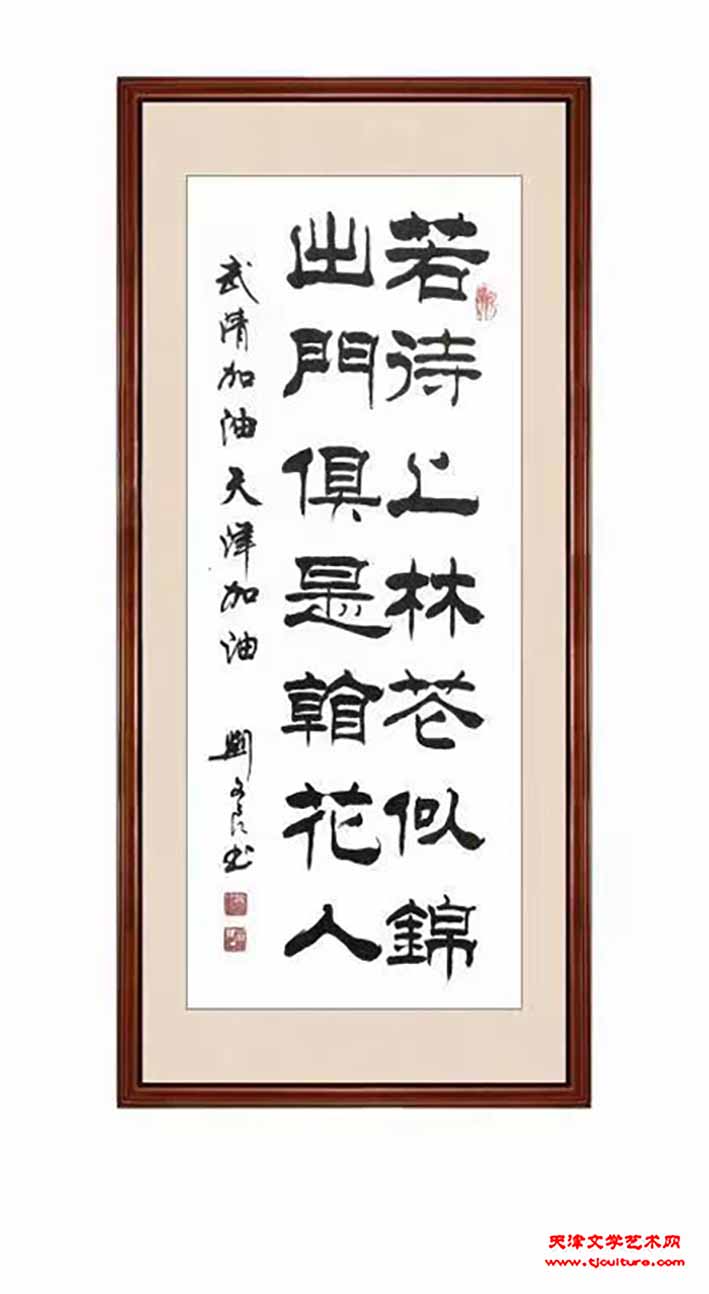 若待上林花似錦
出門俱是看花人
武清加油天津加油 劉文良书
天津文学艺术网
www.tjculture.com